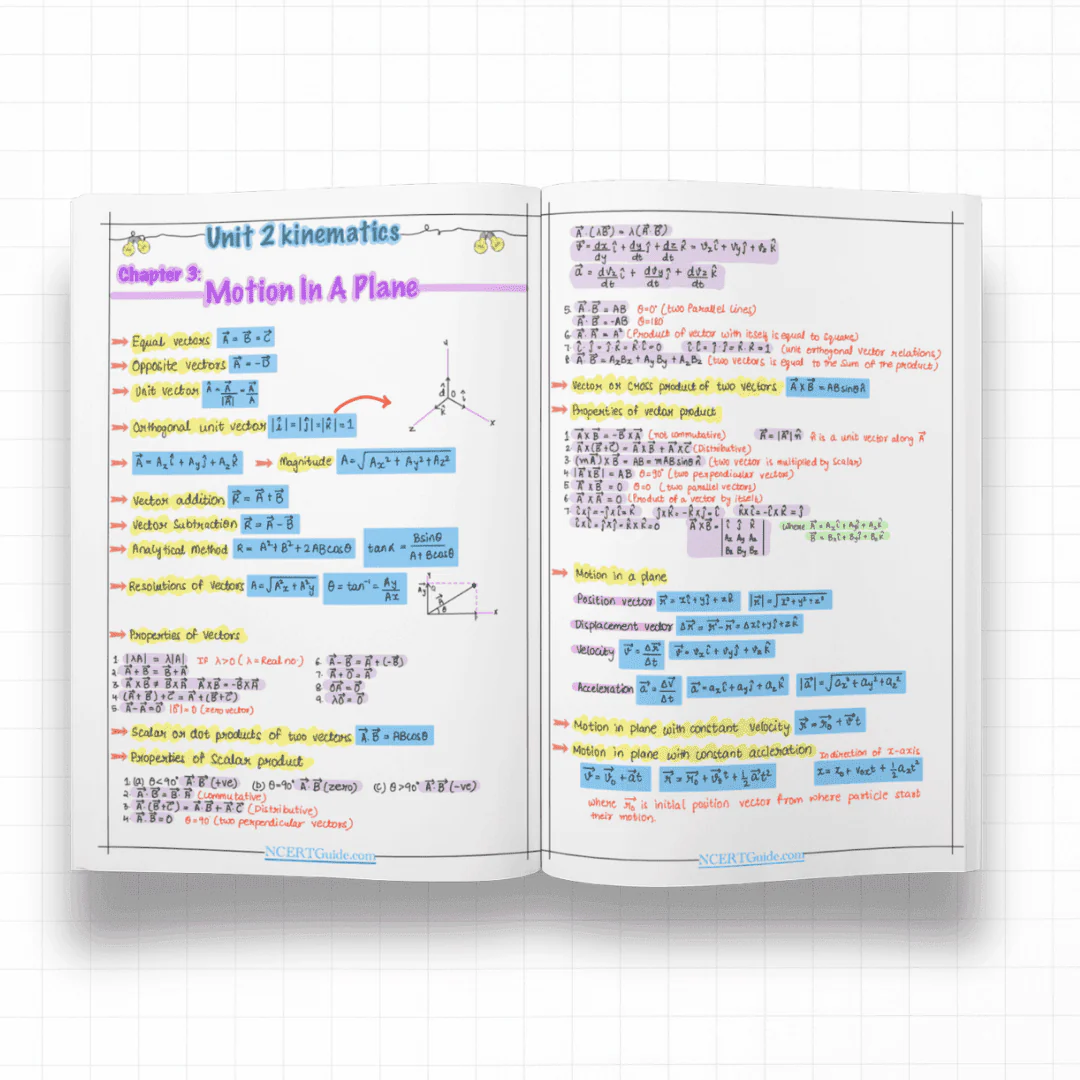 Unit 2 kinematics
Chapter 3:
Motion In A Plane
Equal vectors A⃗ = B⃗ = C⃗
Opposite vectors A⃗ = -D⃗
Unit vector Â = A⃗/|A⃗| = A⃗/A
Orthogonal unit vector |î|=|ĵ|=|k̂|=1
y
x
z
O
A⃗ = Axî + Ayĵ + Azk̂ Magnitude A = √Ax² + Ay² + Az²
Vector addition R⃗ = A⃗ + B⃗
Vector Subtraction R⃗ = A⃗ - B⃗
Analytical method R = A² + B² + 2ABcosθ tanα = Bsinθ/A + Bcosθ
Resolutions of Vectors A = √A²x + A²y θ = tan⁻¹ = Ay/Ax
Properties of Vectors
1 |λA| = λ|A| If λ>0 (λ = Real no.)
2. A⃗ + B⃗ = B⃗ + A⃗
3. A⃗ x B⃗ ≠ B⃗ x A⃗ A⃗ x B⃗ = -B⃗ x A⃗
4 (A⃗ + B⃗) + C⃗ = A⃗ + (B⃗ + C⃗)
5. A⃗ - A⃗ = 0⃗ |0⃗| = 0 (zero vector)
6. A⃗ - B⃗ = A⃗ + (-B⃗)
7. A⃗ + 0⃗ = A⃗
8 0A⃗ = 0⃗
9. λ0⃗ = 0⃗
Scalar or dot products of two vectors A⃗.B⃗ = ABcosθ
Properties of Scalar product
1 (a) θ<90° A⃗.B⃗ (+ve) (b) θ=90° A⃗.B⃗ (zero) (c) θ>90° A⃗.B⃗ (-ve)
2. A⃗.B⃗ = B⃗.A⃗ (Commutative)
3. A⃗.(B⃗+C⃗) = A⃗.B⃗ + A⃗.C⃗ (Distributive)
4 A⃗.B⃗ = 0 θ=90 (two perpendicular vectors)
NCERTGuide.com
A⃗.(λB⃗) = λ(A⃗.B⃗)
v⃗ = dx/dy î + dy/dt ĵ + dz/dt k̂ = vxî + vyĵ + vzk̂
a⃗ = dvx/dt î + dvy/dt ĵ + dvz/dt k̂
5. A⃗.B⃗ = AB θ=0° (two Parallel Lines)
A⃗.B⃗ = -AB θ=180°
6 A⃗.A⃗ = A² (Product of vector with itself is equal to square)
7. î.ĵ = ĵ.k̂ = k̂.î = 0 î.î = ĵ.ĵ = k̂.k̂ = 1 (unit orthogonal vector relations)
8 A⃗.B⃗ = AxBx + AyBy + AzBz (two vectors is equal to the sum of the product)
Vector or cross product of two vectors A⃗ x B⃗ = ABsinθn̂
Properties of vector product
1 A⃗ x B⃗ = -B⃗ x A⃗ (not commutative) A⃗ = |A⃗| n̂ n̂ is a unit vector along A⃗
2 A⃗ x (B⃗ + C⃗) = A⃗ x B⃗ + A⃗ x C⃗ (Distributive)
3 (mA⃗) x B⃗ = AB = mABsinθn̂ (two vector is multiplied by scalar)
4 |A⃗ x B⃗| = AB θ=90° (two perpendicular vectors)
5 A⃗ x B⃗ = 0 θ=0 (two parallel vectors)
6 A⃗ x A⃗ = 0 (Product of a vector by itself)
7 î x ĵ = -ĵ x î = k̂ ĵ x k̂ = -k̂ x ĵ = î k̂ x î = -î x k̂ = ĵ
î x î = ĵ x ĵ = k̂ x k̂ = 0
A⃗ x B⃗ = | î ĵ k̂ |
| Ax Ay Az |
| Bx By Bz |
Where A⃗ = Axî + Ayĵ + Azk̂
B⃗ = Bxî + Byĵ + Bzk̂
Motion in a plane
Position vector r⃗ = xî + yĵ + zk̂ |r⃗| = √x² + y² + z²
Displacement vector Δr⃗ = r⃗' - r⃗ = Δxî + yĵ + zk̂
Velocity v⃗ = Δr⃗/Δt v⃗ = vxî + vyĵ + vzk̂
Acceleration a⃗ = Δv⃗/Δt a⃗ = axî + ayĵ + azk̂ |a⃗| = √ax² + ay² + az²
Motion in plane with constant velocity r⃗ = r⃗0 + v⃗t
Motion in plane with constant accleration In direction of x-axis
v⃗ = v⃗0 + a⃗t r⃗ = r⃗0 + v⃗0t + ½ a⃗t² x = x0 + v0xt + ½ axt²
where r⃗0 is initial position vector from where particle start
their motion.
NCERTGuide.com